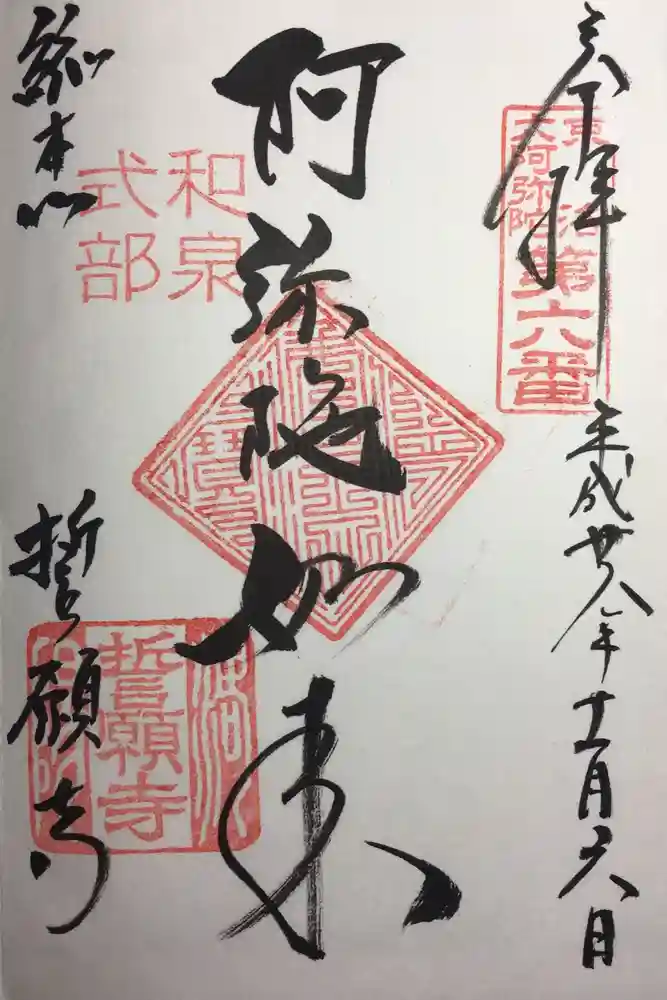 奉拝
平成廿八年十二月六日
六阿弥陀
第六番
阿弥陀如来
和泉
式部
総本山
誓願寺
誓願寺